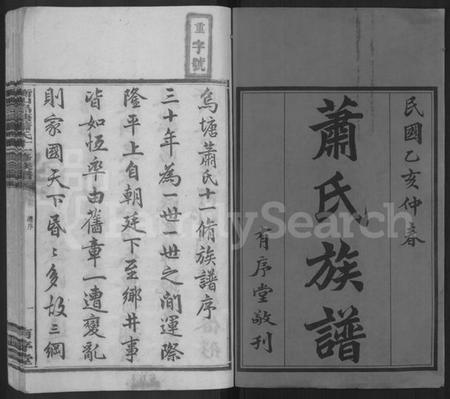 民國乙亥仲春
蕭氏族譜
有序堂敬刊
重字號
烏塘蕭氏十一修族譜序
三十年為一世一世之間運際
隆平上自朝廷下至鄉井事
皆如恆率由舊章一遭變亂
則家國天下昬〻多故三綱
FamilySearch